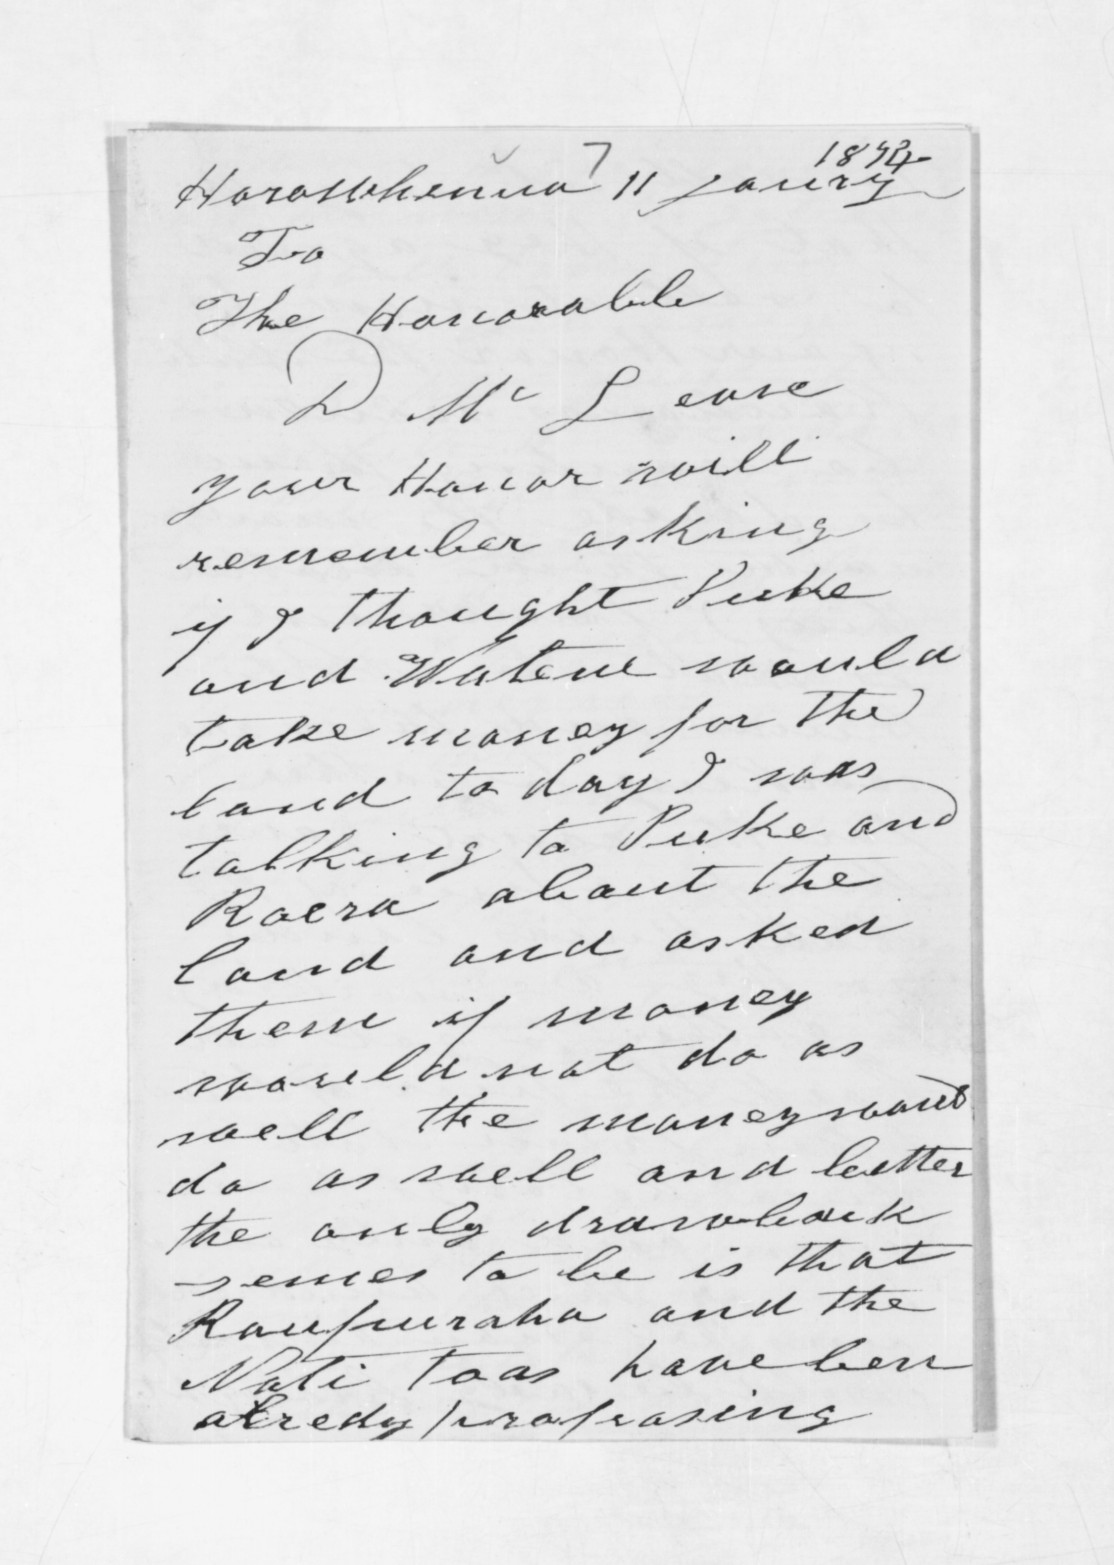 1874
Horowhenua 11 Janury
To
The Honorable
D Mc Leane
your Honor will
remember asking
if I thought Puke
and Watene would
take money for the
land to day I was
talking to Puke and
Roera about the
land and asked
them if money
would not do as
well the money would
do as well and better
the only drawback
semes to be is that
Raupuraha and the
Nati toas have ben
alredy proposing